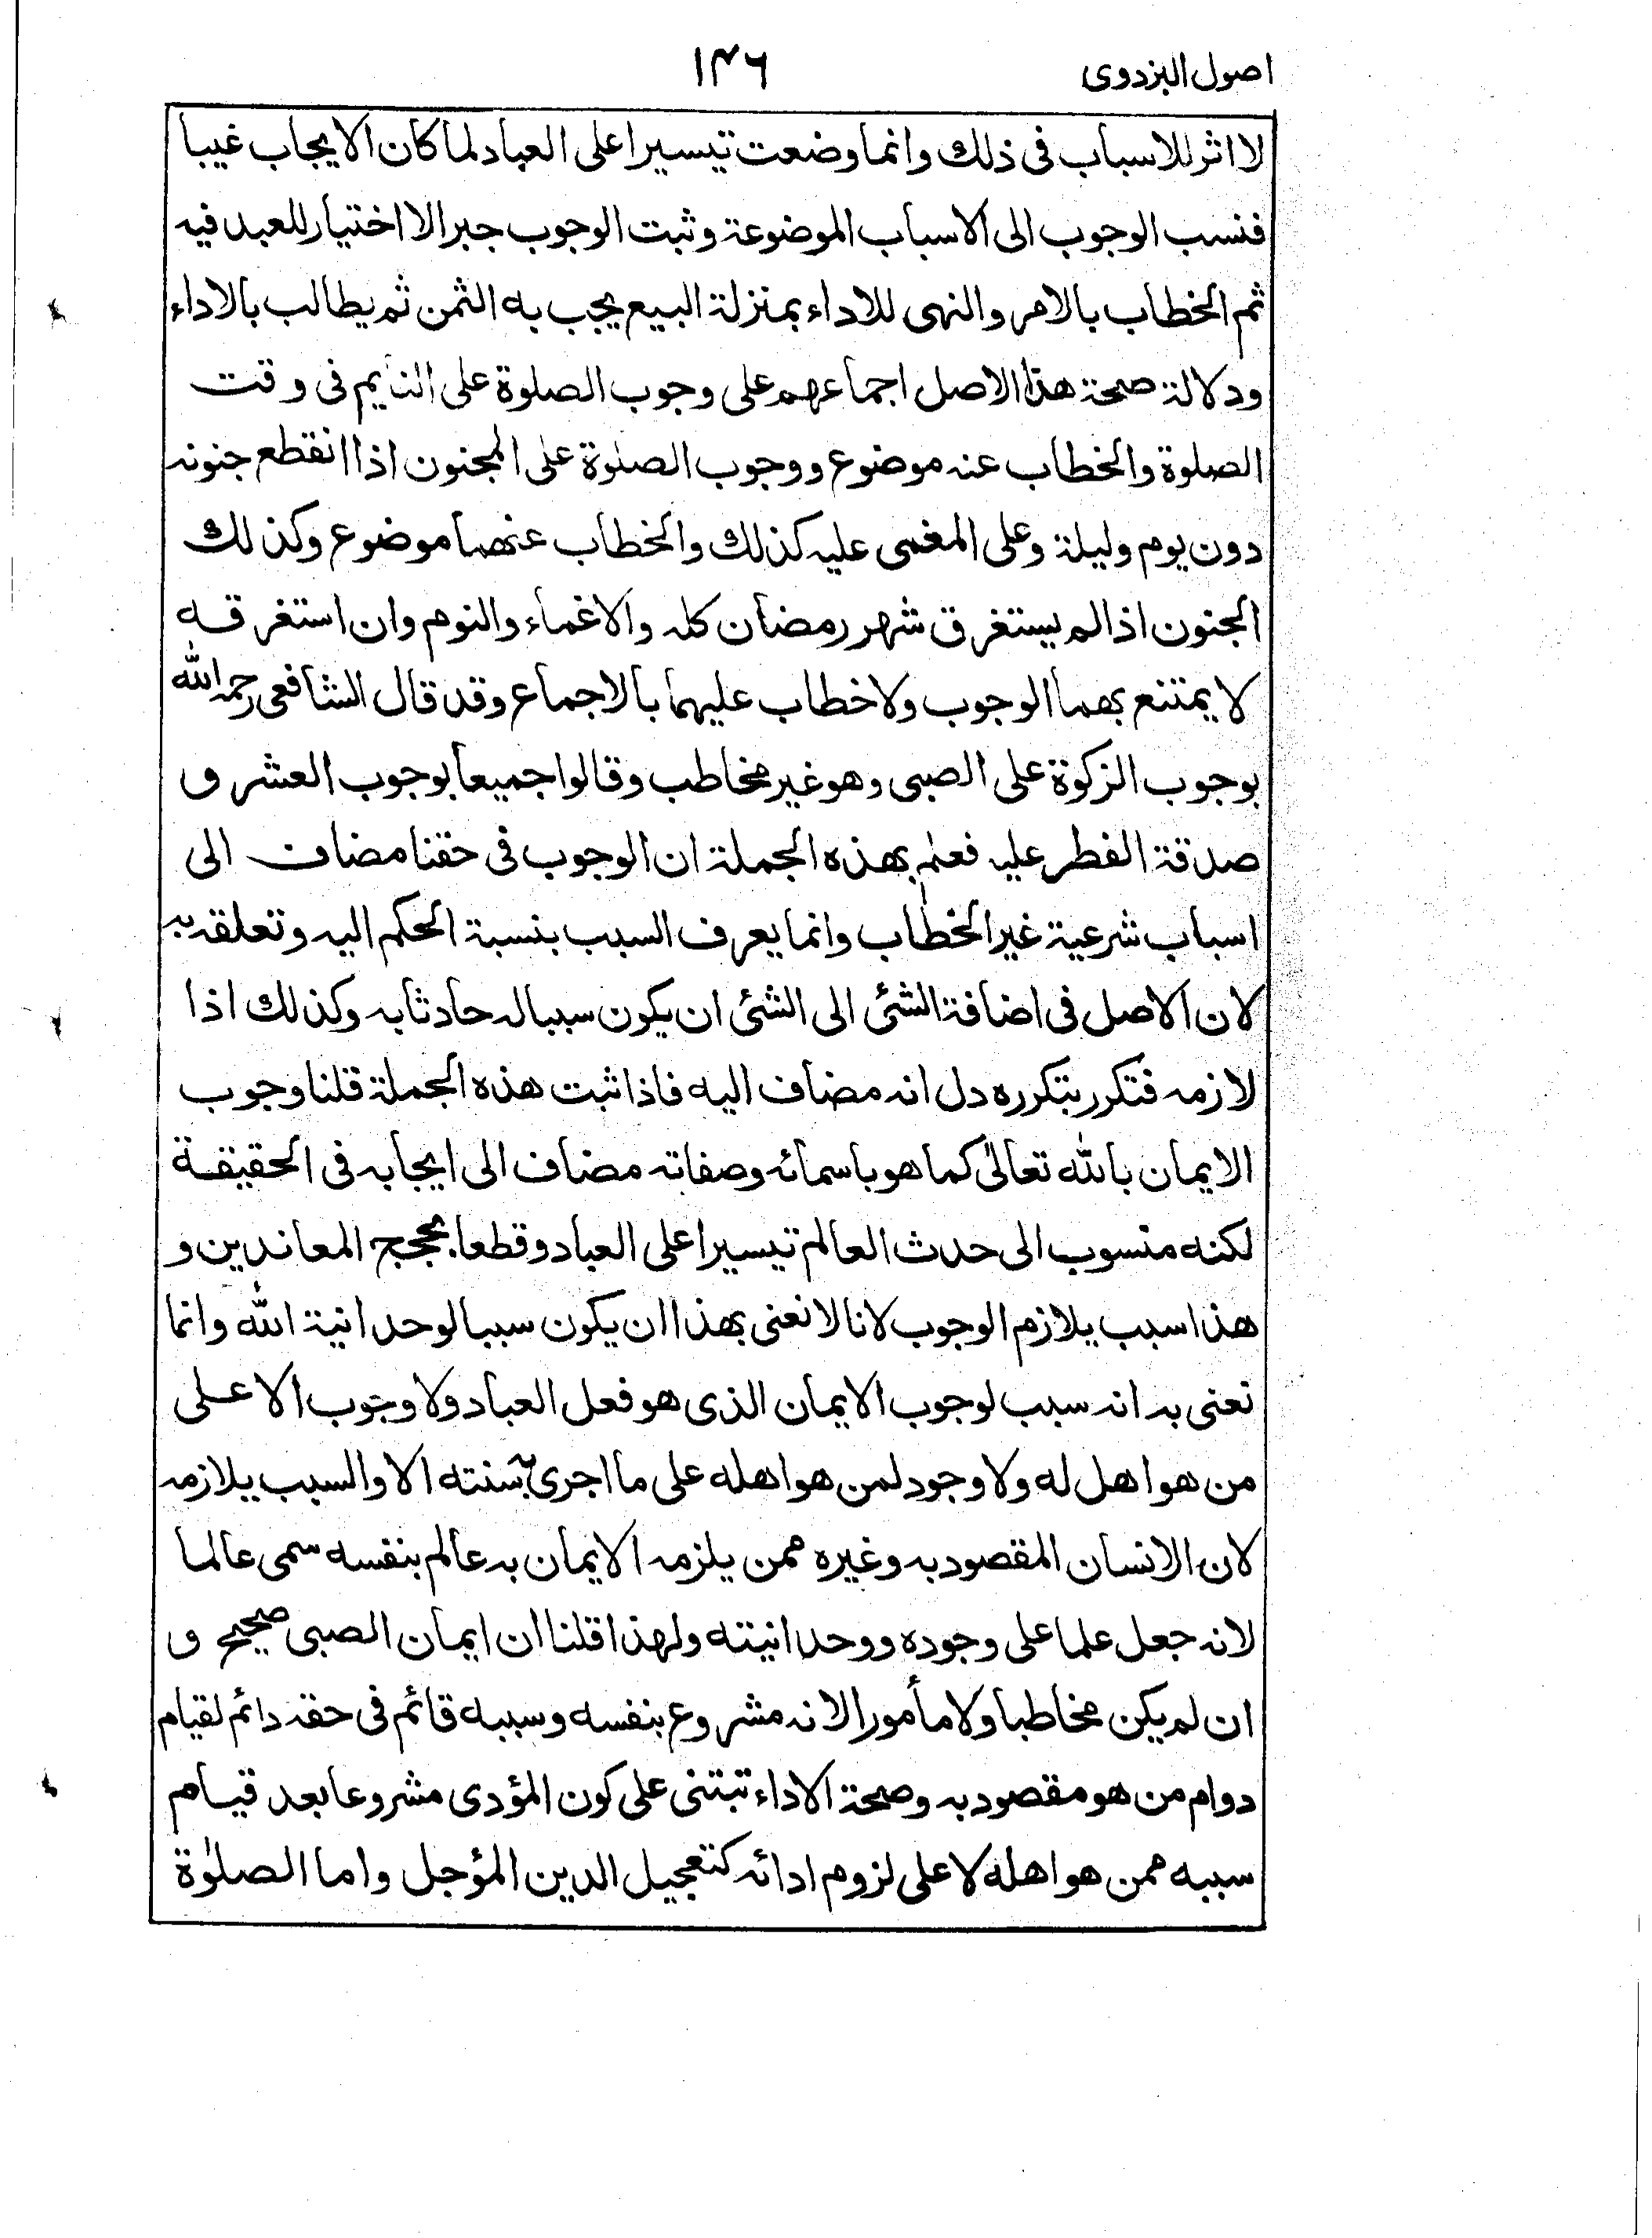 اصول البزدوى ١٣٦
لا اثر للاسباب فى ذلك وانما وضعت تيسيرا على العباد لما كان الايجاب غيبا
فنسب الوجوب الى الاسباب الموضوعة وثبت الوجوب جبرا لا اختيار للعبد فيه
ثم الخطاب بالامر والنهى للاداء بمنزلة البيع يجب به الثمن ثم يطالب بالاداء
ودلالة صحة هذا الاصل اجماعهم على وجوب الصلوة على النأيم فى وقت
الصلوة والخطاب عنه موضوع ووجوب الصلوة على المجنون اذا انقطع جنونه
دون يوم وليلة وعلى المغمى عليه كذلك والخطاب عنهما موضوع وكذلك
الجنون اذا لم يستغرق شهر رمضان كله والاغماء والنوم وان استغرقه
لا يمتنع بهما الوجوب ولا خطاب عليهما بالاجماع وقد قال الشافعى رحمه الله
بوجوب الزكوة على الصبى وهو غير مخاطب وقالوا جميعا بوجوب العشر و
صدقة الفطر عليه فعلم بهذه الجملة ان الوجوب فى حقنا مضاف الى
اسباب شرعية غير الخطاب وانما يعرف السبب بنسبة الحكم اليه وتعلقه به
لان الاصل فى اضافة الشئى الى الشئى ان يكون سببا له حادثا به وكذلك اذا
لازمه فتكرر بتكرره دل انه مضاف اليه فاذا ثبت هذه الجملة قلنا وجوب
الايمان بالله تعالى كما هو باسمائه وصفاته مضاف الى ايجابه فى الحقيقة
لكنه منسوب الى حدث العالم تيسيرا على العباد وقطعا بحجج المعاندين و
هذا سبب يلازم الوجوب لانا لا نعنى بهذا ان يكون سببا لوحدانية الله وانما
نعنى به انه سبب لوجوب الايمان الذى هو فعل العباد ولا وجوب الا على
من هو اهل له ولا وجود لمن هو اهله على ما اجرى به سنته الا والسبب يلازمه
لان الانسان المقصود به وغيره ممن يلزمه الايمان به عالم بنفسه سمى عالما
لانه جعل علما على وجوده ووحدانيته ولهذا قلنا ان ايمان الصبى صحيح و
ان لم يكن مخاطبا ولا مأمورا لانه مشروع بنفسه وسببه قائم فى حقه دائم لقيام
دوام من هو مقصود به وصحة الاداء تبتنى على كون المؤدى مشروعا بعد قيام
سببه ممن هو اهله لا على لزوم ادائه كتعجيل الدين المؤجل واما الصلوٰة